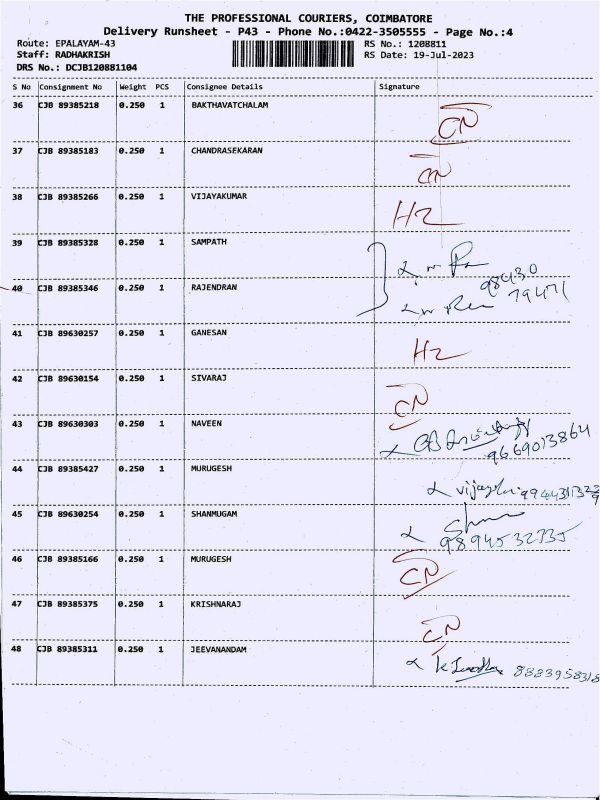 THE PROFESSIONAL COURIERS, COIMBATORE
Delivery Runsheet - P43 - Phone No.:0422-3505555 - Page No.:4
Route: EPALAYAM-43 RS No.: 1208811
Staff: RADHAKRISH RS Date: 19-Jul-2023
DRS No.: DCJB120881104
S No Consignment No Weight PCS Consignee Details Signature
36 CJB 89385218 0.250 1 BAKTHAVATCHALAM CN
37 CJB 89385183 0.250 1 CHANDRASEKARAN CN
38 CJB 89385266 0.250 1 VIJAYAKUMAR H2
39 CJB 89385328 0.250 1 SAMPATH
98430
40 CJB 89385346 0.250 1 RAJENDRAN 79471
41 CJB 89630257 0.250 1 GANESAN H2
42 CJB 89630154 0.250 1 SIVARAJ CN
43 CJB 89630303 0.250 1 NAVEEN
9669013864
44 CJB 89385427 0.250 1 MURUGESH
45 CJB 89630254 0.250 1 SHANMUGAM
46 CJB 89385166 0.250 1 MURUGESH CN
47 CJB 89385375 0.250 1 KRISHNARAJ CN
48 CJB 89385311 0.250 1 JEEVANANDAM 8883958318